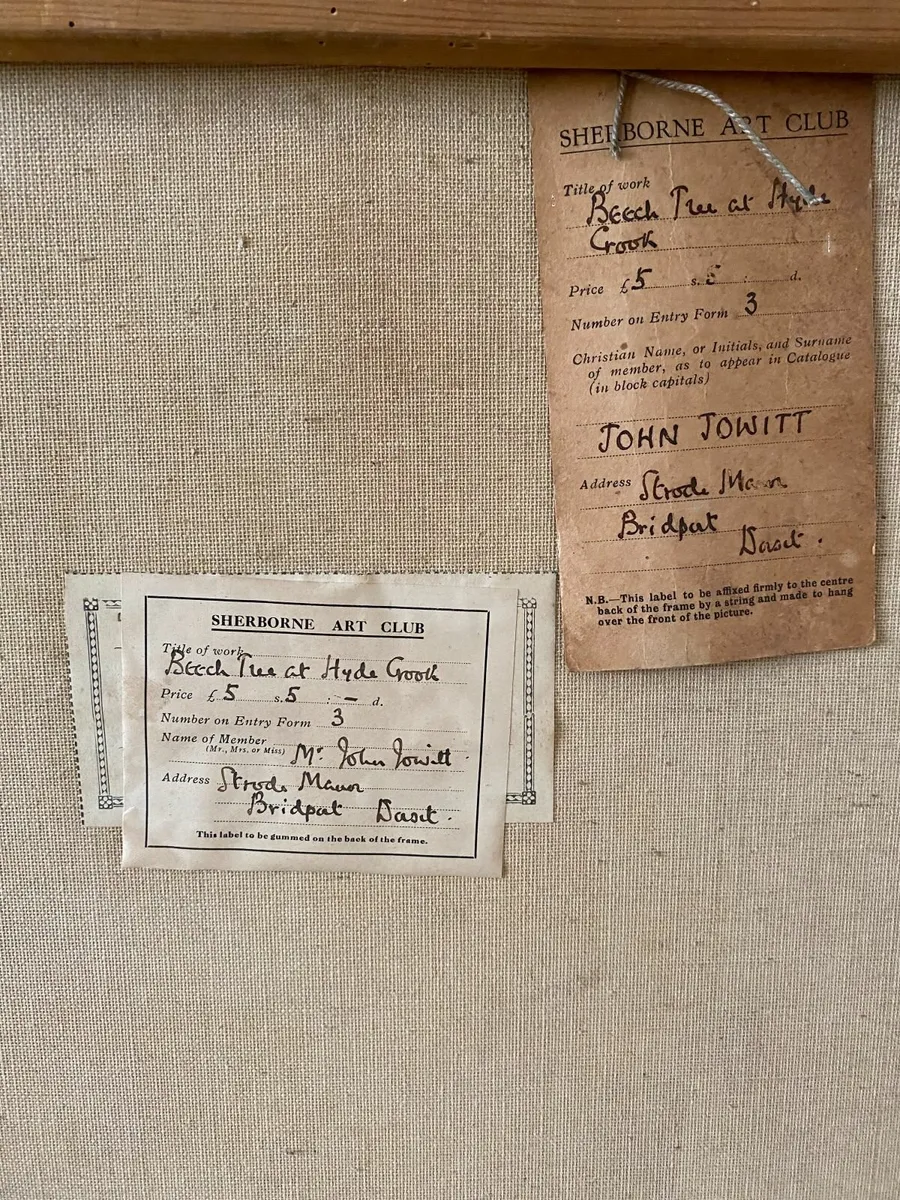 SHERBORNE ART CLUB
Title of work
Beech Tree at Hyde
Crook
Price £5 s. 5 : d.
Number on Entry Form 3
Christian Name, or Initials, and Surname
of member, as to appear in Catalogue
(in block capitals)
JOHN JOWITT
Address Strode Manor
Bridport
Dorset.
N.B.—This label to be affixed firmly to the centre
back of the frame by a string and made to hang
over the front of the picture.
SHERBORNE ART CLUB
Title of work
Beech Tree at Hyde Crook
Price £5 s. 5 : — d.
Number on Entry Form 3
Name of Member
(Mr., Mrs. or Miss) Mr. John Jowitt.
Address Strode Manor
Bridport Dorset.
This label to be gummed on the back of the frame.